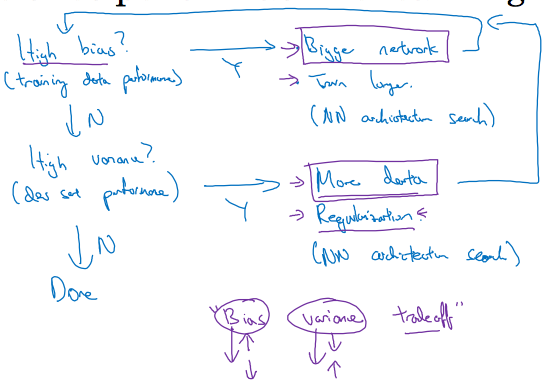 High bias?
(training data performance)
Y
→ Bigger network
→ Train longer.
(NN architecture search)
N
High variance?
(dev set performance)
Y
→ More data
→ Regularization
(NN architecture search)
N
Done
"Bias variance tradeoff"